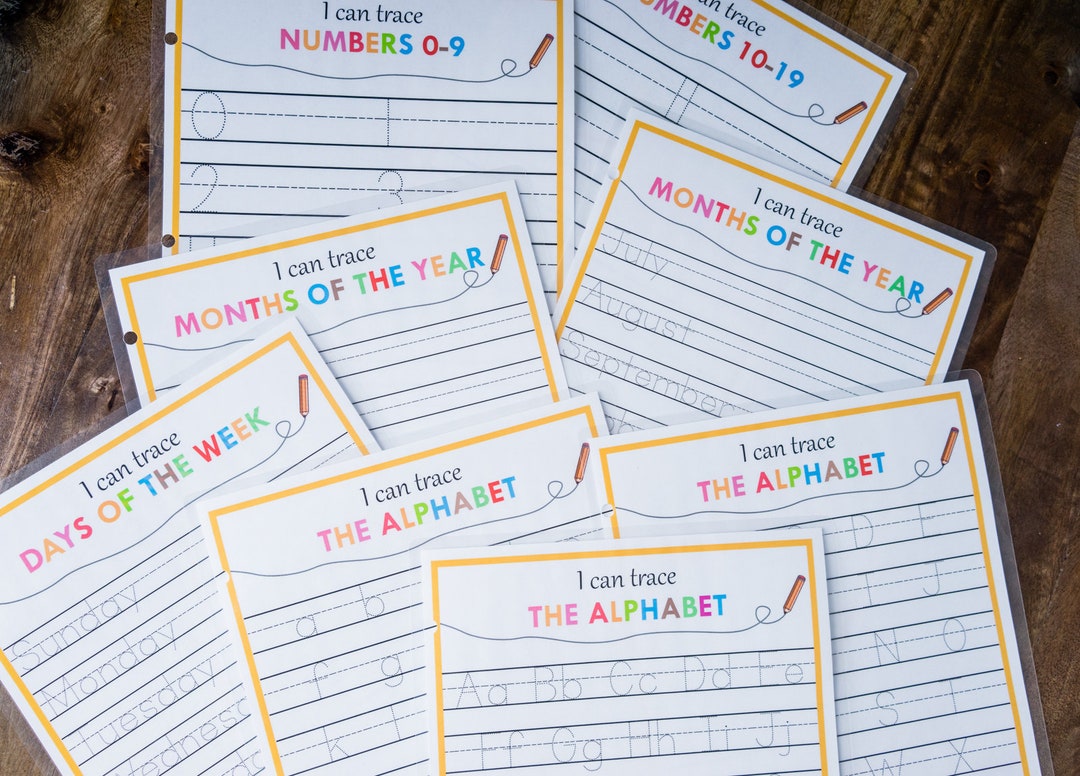 I can trace
NUMBERS 0-9
0 1
2 3
I can trace
NUMBERS 10-19
I can trace
MONTHS OF THE YEAR
I can trace
MONTHS OF THE YEAR
July
August
September
I can trace
DAYS OF THE WEEK
Sunday
Monday
Tuesday
Wednesd
I can trace
THE ALPHABET
a b
f g
k l
I can trace
THE ALPHABET
D E
I J
N O
S T
W X
I can trace
THE ALPHABET
Aa Bb Cc Dd Ee
Ff Gg Hh Ii Jj